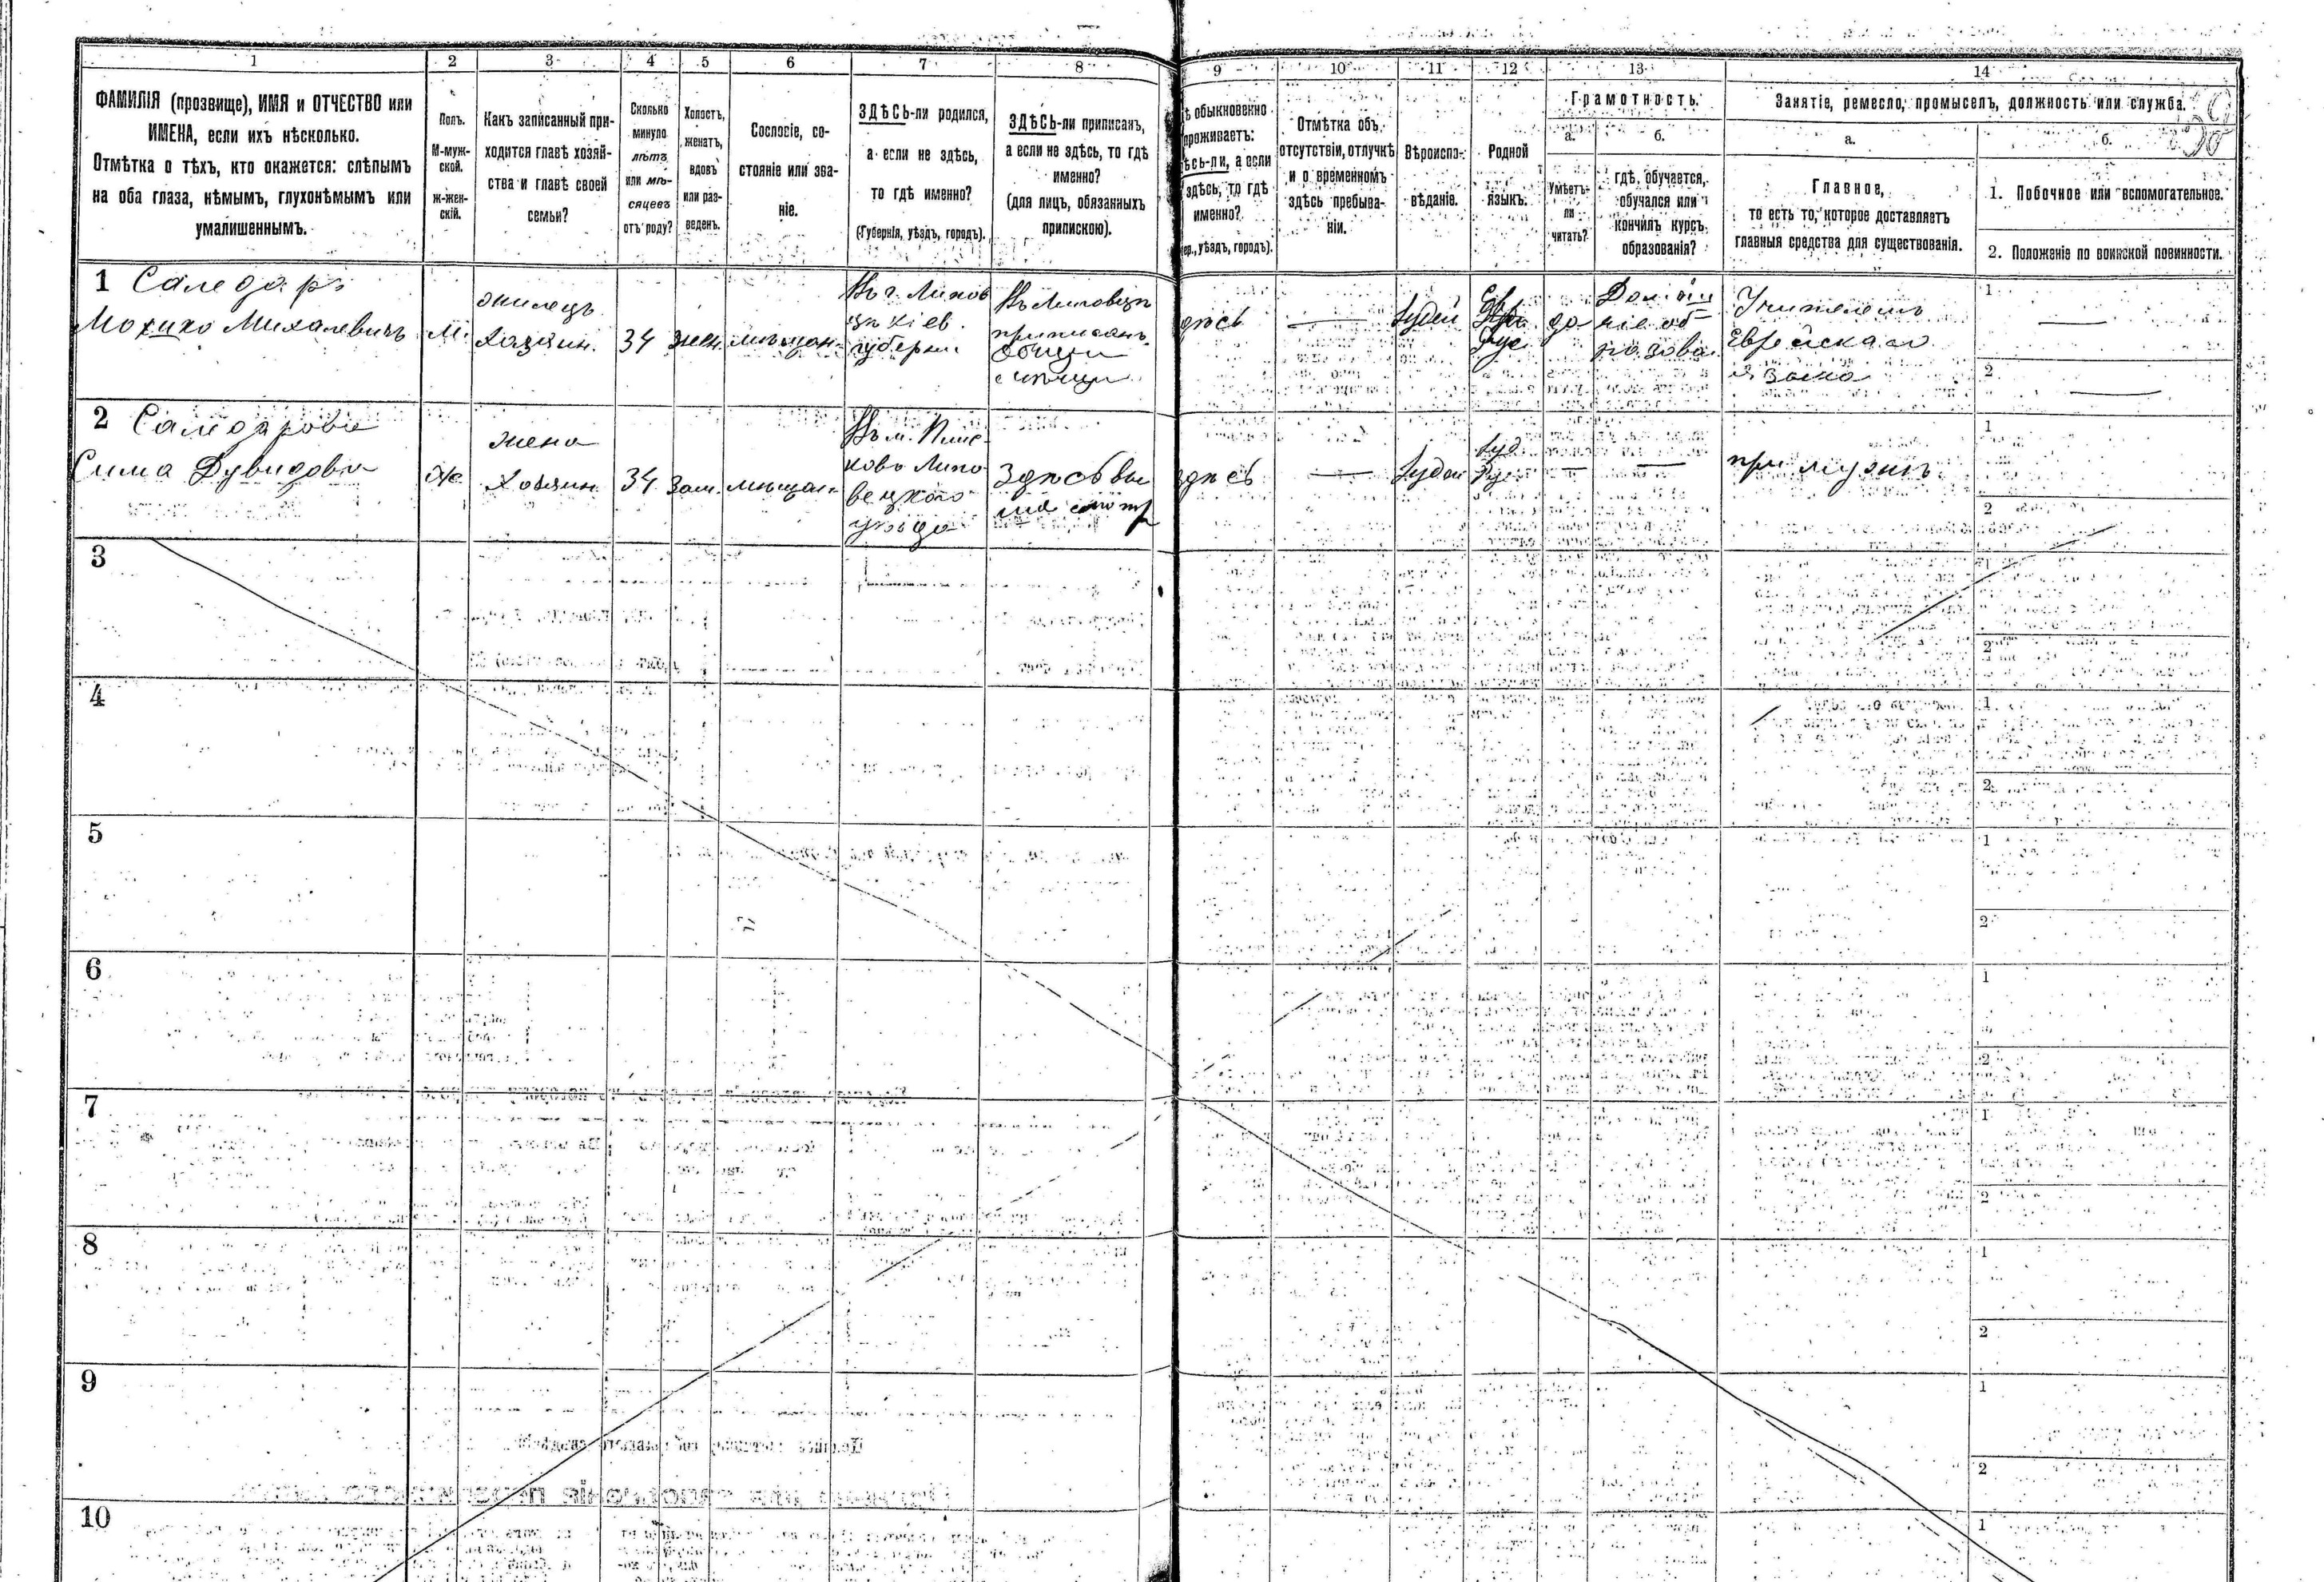 1 2 3 4 5 6 7 8 9 10 11 12 13 14
ФАМИЛІЯ (прозвище), ИМЯ и ОТЧЕСТВО или
ИМЕНА, если ихъ нѣсколько.
Отмѣтка о тѣхъ, кто окажется: слѣпымъ
на оба глаза, нѣмымъ, глухонѣмымъ или
умалишеннымъ.
Полъ.
М-муж-
ской.
ж-жен-
скій.
Какъ записанный при-
ходится главѣ хозяй-
ства и главѣ своей
семьи?
Сколько
минуло
лѣтъ
или мѣ-
сяцевъ
отъ роду?
Холостъ,
женатъ,
вдовъ
или раз-
веденъ.
Сословіе, со-
стояніе или зва-
ніе.
ЗДѢСЬ-ли родился,
а если не здѣсь,
то гдѣ именно?
(Губернія, уѣздъ, городъ).
ЗДѢСЬ-ли приписанъ,
а если не здѣсь, то гдѣ
именно?
(для лицъ, обязанныхъ
припискою).
ѣ обыкновенно
проживаетъ:
ѣсь-ли, а если
здѣсь, то гдѣ
именно?
ер., уѣздъ, городъ).
Отмѣтка объ
отсутствіи, отлучкѣ
и о временномъ
здѣсь пребыва-
ніи.
Вѣроиспо-
вѣданіе.
Родной
языкъ.
Грамотность.
а.
Умѣетъ-
ли
читать?
б.
гдѣ, обучается,
обучался или
кончилъ курсъ
образованія?
Занятіе, ремесло, промыселъ, должность или служба.
а.
Главное,
то есть то, которое доставляетъ
главныя средства для существованія.
б.
1. Побочное или вспомогательное.
2. Положеніе по воинской повинности.
1 Саледаръ
Мохико Михалевичъ
М.
жилецъ
Хазяин.
34
жен.
мѣщан.
Въ г. Липов
цѣ Кіев.
губерні.
Въ Липовцѣ
приписанъ
здѣсь
Іудей
Евр
да
Учителемъ
Еврейскаго
языка
1
2
2
Сима Дувидовна
Же
жена
Хозяин
34
Зам.
мѣщан.
вецкого
уѣзда
здѣсь вы
ше
здѣсь
Іудей
при мужѣ
1
2
3
1
2
4
1
2
5
1
2
6
1
2
7
1
2
8
1
2
9
1
2
10
1